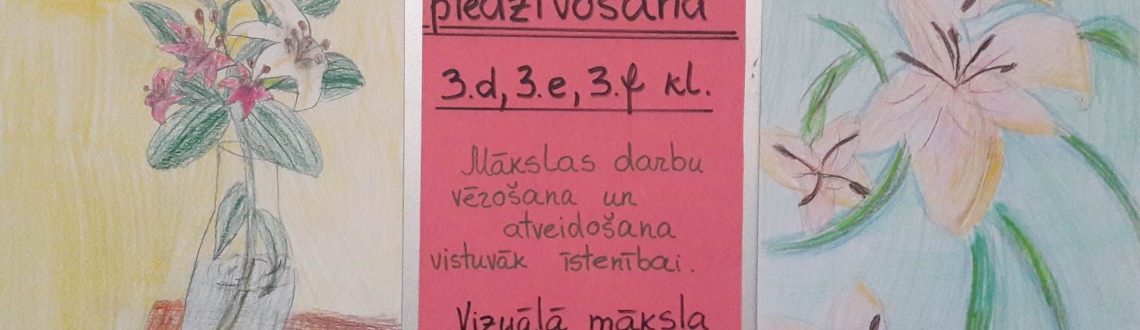 piedzīvošana
3.d, 3.e, 3.f kl.
Mākslas darbu
vērošana un
atveidošana
vistuvāk īstenībai.
Vizuālā māksla